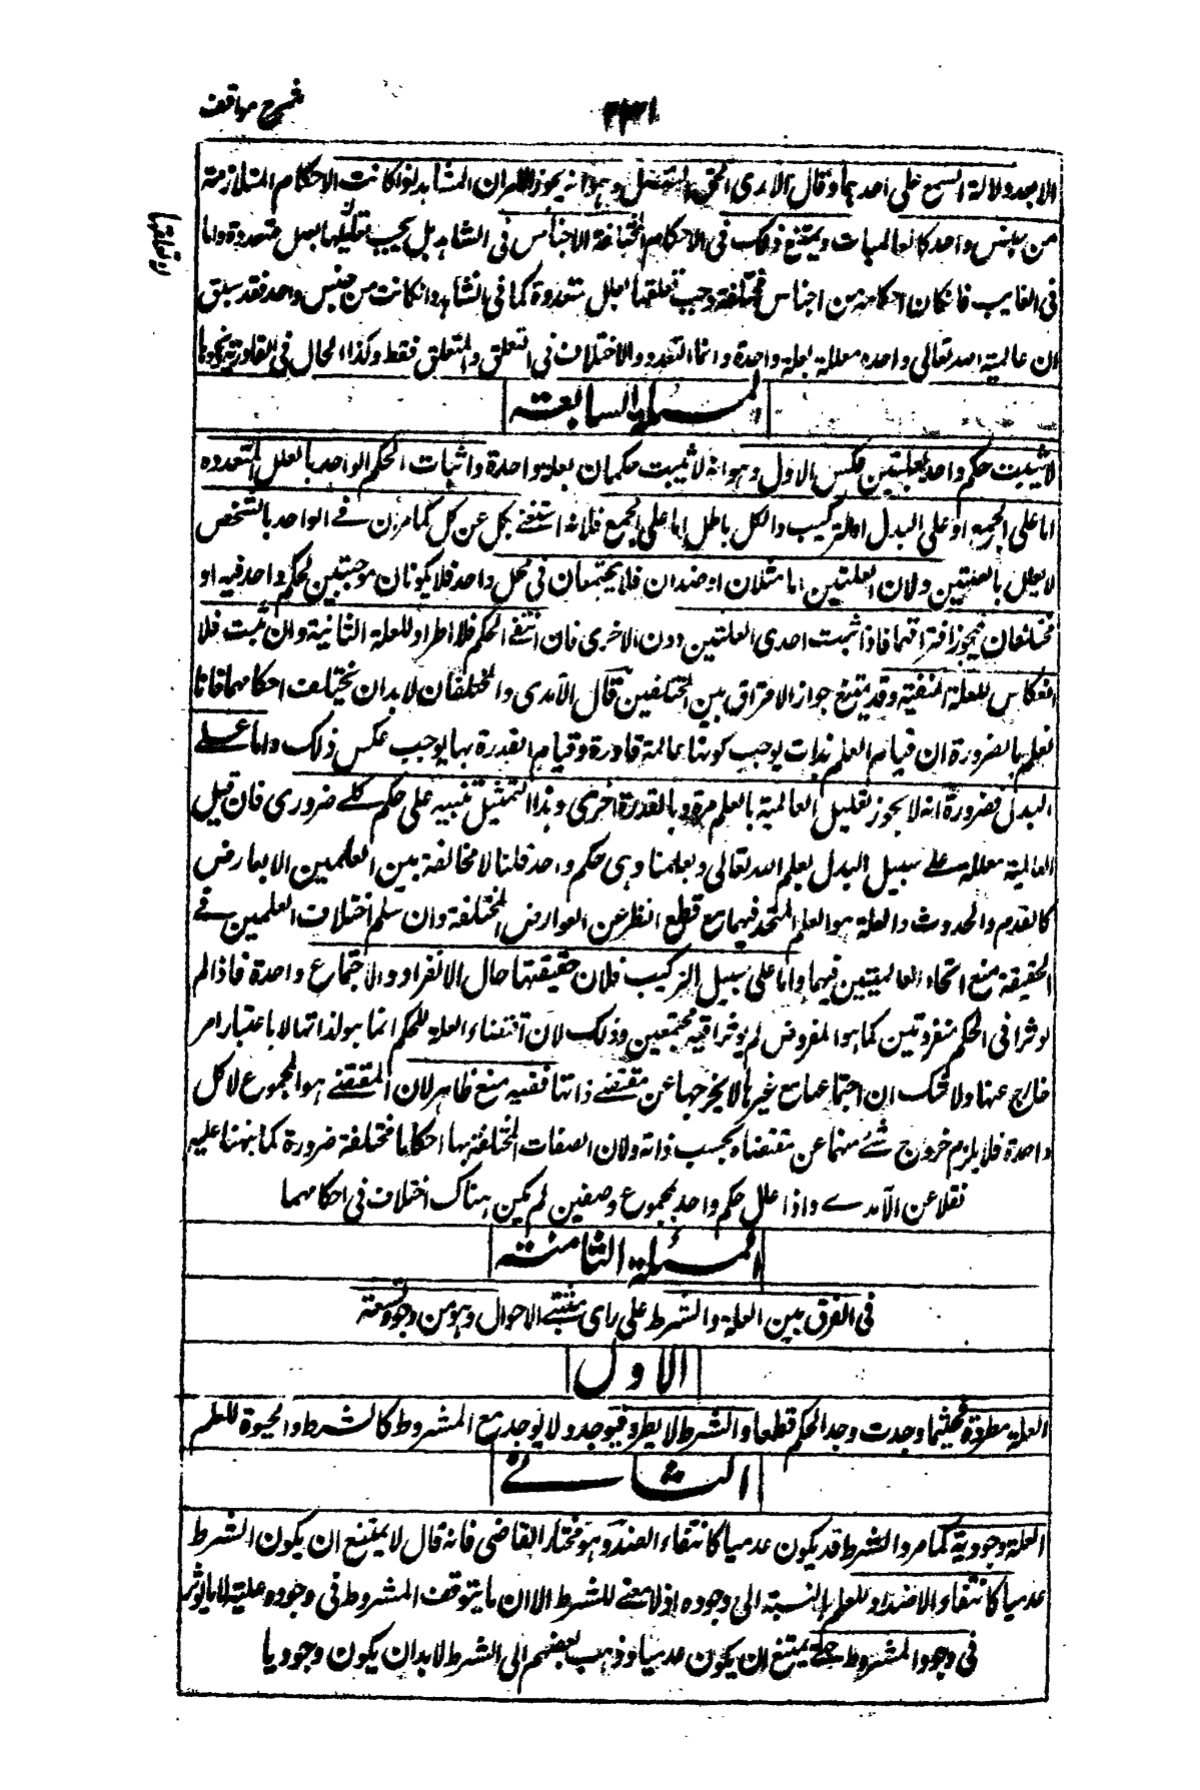 شرح مواقف
الابعد دلالة السمع على احدهما وقال الآمدى الحق التفصيل وهو انه يجوز فى الشاهد انكانت الاحكام المتلازمة
من جنس واحد كالعالميات ويمتنع ذلك فى الاحكام المختلفة الاجناس فى الشاهد بل يجب تعليلها بعلل متعددة واما
فى الغايب فانكان احكامه من اجناس مختلفة وجب تعلقها بعلل متعددة كما فى الشاهد وانكانت من جنس واحد فقد سبق
ان عالمية الله تعالى واحدة معللة بعلة واحدة وانما التعدد والاختلاف فى التعلق والمتعلق فقط وكذا الحال فى القادرية ونحوها
المسئلة السابعة
لا يثبت حكم واحد بعلتين عكس الاول وهو انه لا يثبت حكمان بعلة واحدة واثبات الحكم الواحد بالعلل المتعددة
اما على الجمع او على البدل او التركيب والكل باطل اما على الجمع فلانه استغنى بكل عن كل كما مر من ان فى الواحد بالشخص
لا يعلل بالعلتين ولان العلتين اما مثلان او ضدان فلا يجتمعان فى محل واحد فلا يكونان موجبتين لحكم واحد فيه او
مختلفان فيجوز افتراقهما فاذا ثبت احدى العلتين دون الاخرى فان انتفى الحكم فلا اطراد للعلة الثانية وان ثبت فلا
انعكاس للعلة المنفية وقد يمتنع جواز الافتراق بين المختلفين قال الآمدى والمختلفان لابد ان يختلف احكامهما فانا
نعلم بالضرورة ان قيام العلم بذات يوجب كونها عالمة لا قادرة وقيام القدرة بها يوجب عكس ذلك واما على
البدل فضرورة انه لا يجوز تعليل العالمية بالعلم مرة وبالقدرة اخرى وهذا التمثيل تنبيه على حكم كلى ضرورى فان قيل
العالمية معللة على سبيل البدل بعلم الله تعالى وبعلمنا وهى حكم واحد قلنا لا مخالفة بين العلمين الا بعارض
كالقدم والحدوث والعلة هو العلم المتحد فيهما مع قطع النظر عن العوارض المختلفة وان سلم اختلاف العلمين فى
الحقيقة منع اتحاد العالميتين فيهما واما على سبيل التركيب فلان حقيقتها حال الانفراد والاجتماع واحدة فاذا لم
يوثرا فى الحكم منفردتين كما هو المفروض لم يوثرا فيه مجتمعين وذلك لان اقتضاء العلة للحكم انما هو لذاتها لا باعتبار امر
خارج عنها ولا شك ان اجتماعها مع غيرها لا يخرجها عن مقتضى ذاتها ففيه منع ظاهر لان المقتضى هو المجموع لا كل
واحدة فلا يلزم خروج شئ منهما عن مقتضاه بحسب ذاته ولان الصفات المختلفة بها احكاما مختلفة ضرورة كما نبهنا عليه
نقلا عن الآمدى واذا علل حكم واحد بمجموع وصفين لم يكن هناك اختلاف فى احكامهما
المسئلة الثامنة
فى الفرق بين العلة والشرط على راى مثبتى الاحوال وهو من وجوه تسعة
الاول
العلة مطردة فحيثما وجدت وجد الحكم قطعا والشرط لا يطرد فيوجد ولا يوجد مع المشروط كالشرط والحيوة للعلم
الثانى
العلة وجودية كما مر والشرط قد يكون عدميا كانتفاء الضد وهو مختار القاضى فانه قال لا يمتنع ان يكون الشرط
عدميا كانتفاء الاضداد للعلم بالنسبة الى وجوده اذ لا معنى للشرط الا ان ما يتوقف المشروط فى وجوده عليه لا ما يوثر
فى وجود المشروط حتى يمتنع ان يكون عدميا وذهب بعضهم الى الشرط لابد ان يكون وجوديا